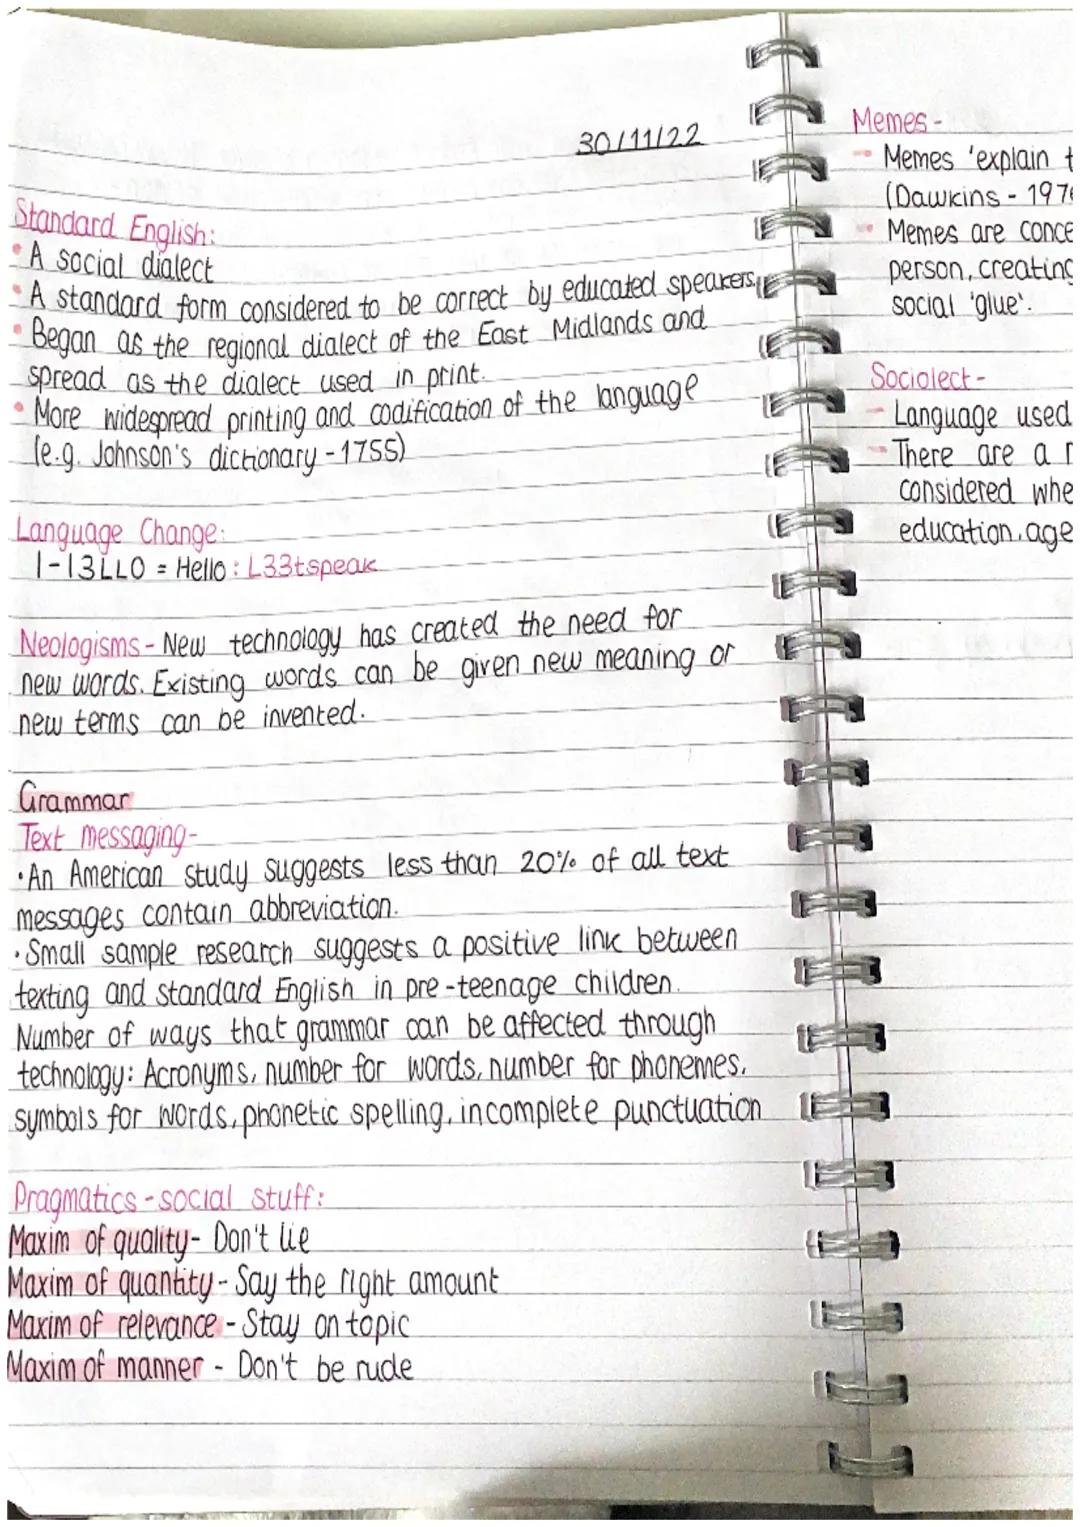 30/11/22
Standard English:
• A social dialect
• A standard form considered to be correct by educated speakers.
• Began as the regional dialect of the East Midlands and
spread as the dialect used in print.
• More widespread printing and codification of the language
(e.g. Johnson's dictionary - 1755)
Language Change:
|-|3LLO = Hello : L33tspeak
Neologisms - New technology has created the need for
new words. Existing words can be given new meaning or
new terms can be invented.
Grammar
Text messaging -
• An American study suggests less than 20% of all text
messages contain abbreviation.
• Small sample research suggests a positive link between
texting and standard English in pre-teenage children.
Number of ways that grammar can be affected through
technology: Acronyms, number for words, number for phonemes,
symbols for words, phonetic spelling, incomplete punctuation
Pragmatics - social stuff:
Maxim of quality - Don't lie
Maxim of quantity - Say the right amount
Maxim of relevance - Stay on topic
Maxim of manner - Don't be rude
Memes -
- Memes 'explain
(Dawkins - 197
• Memes are conce
person, creating
social 'glue'.
Sociolect -
- Language used
- There are a
considered whe
education, age